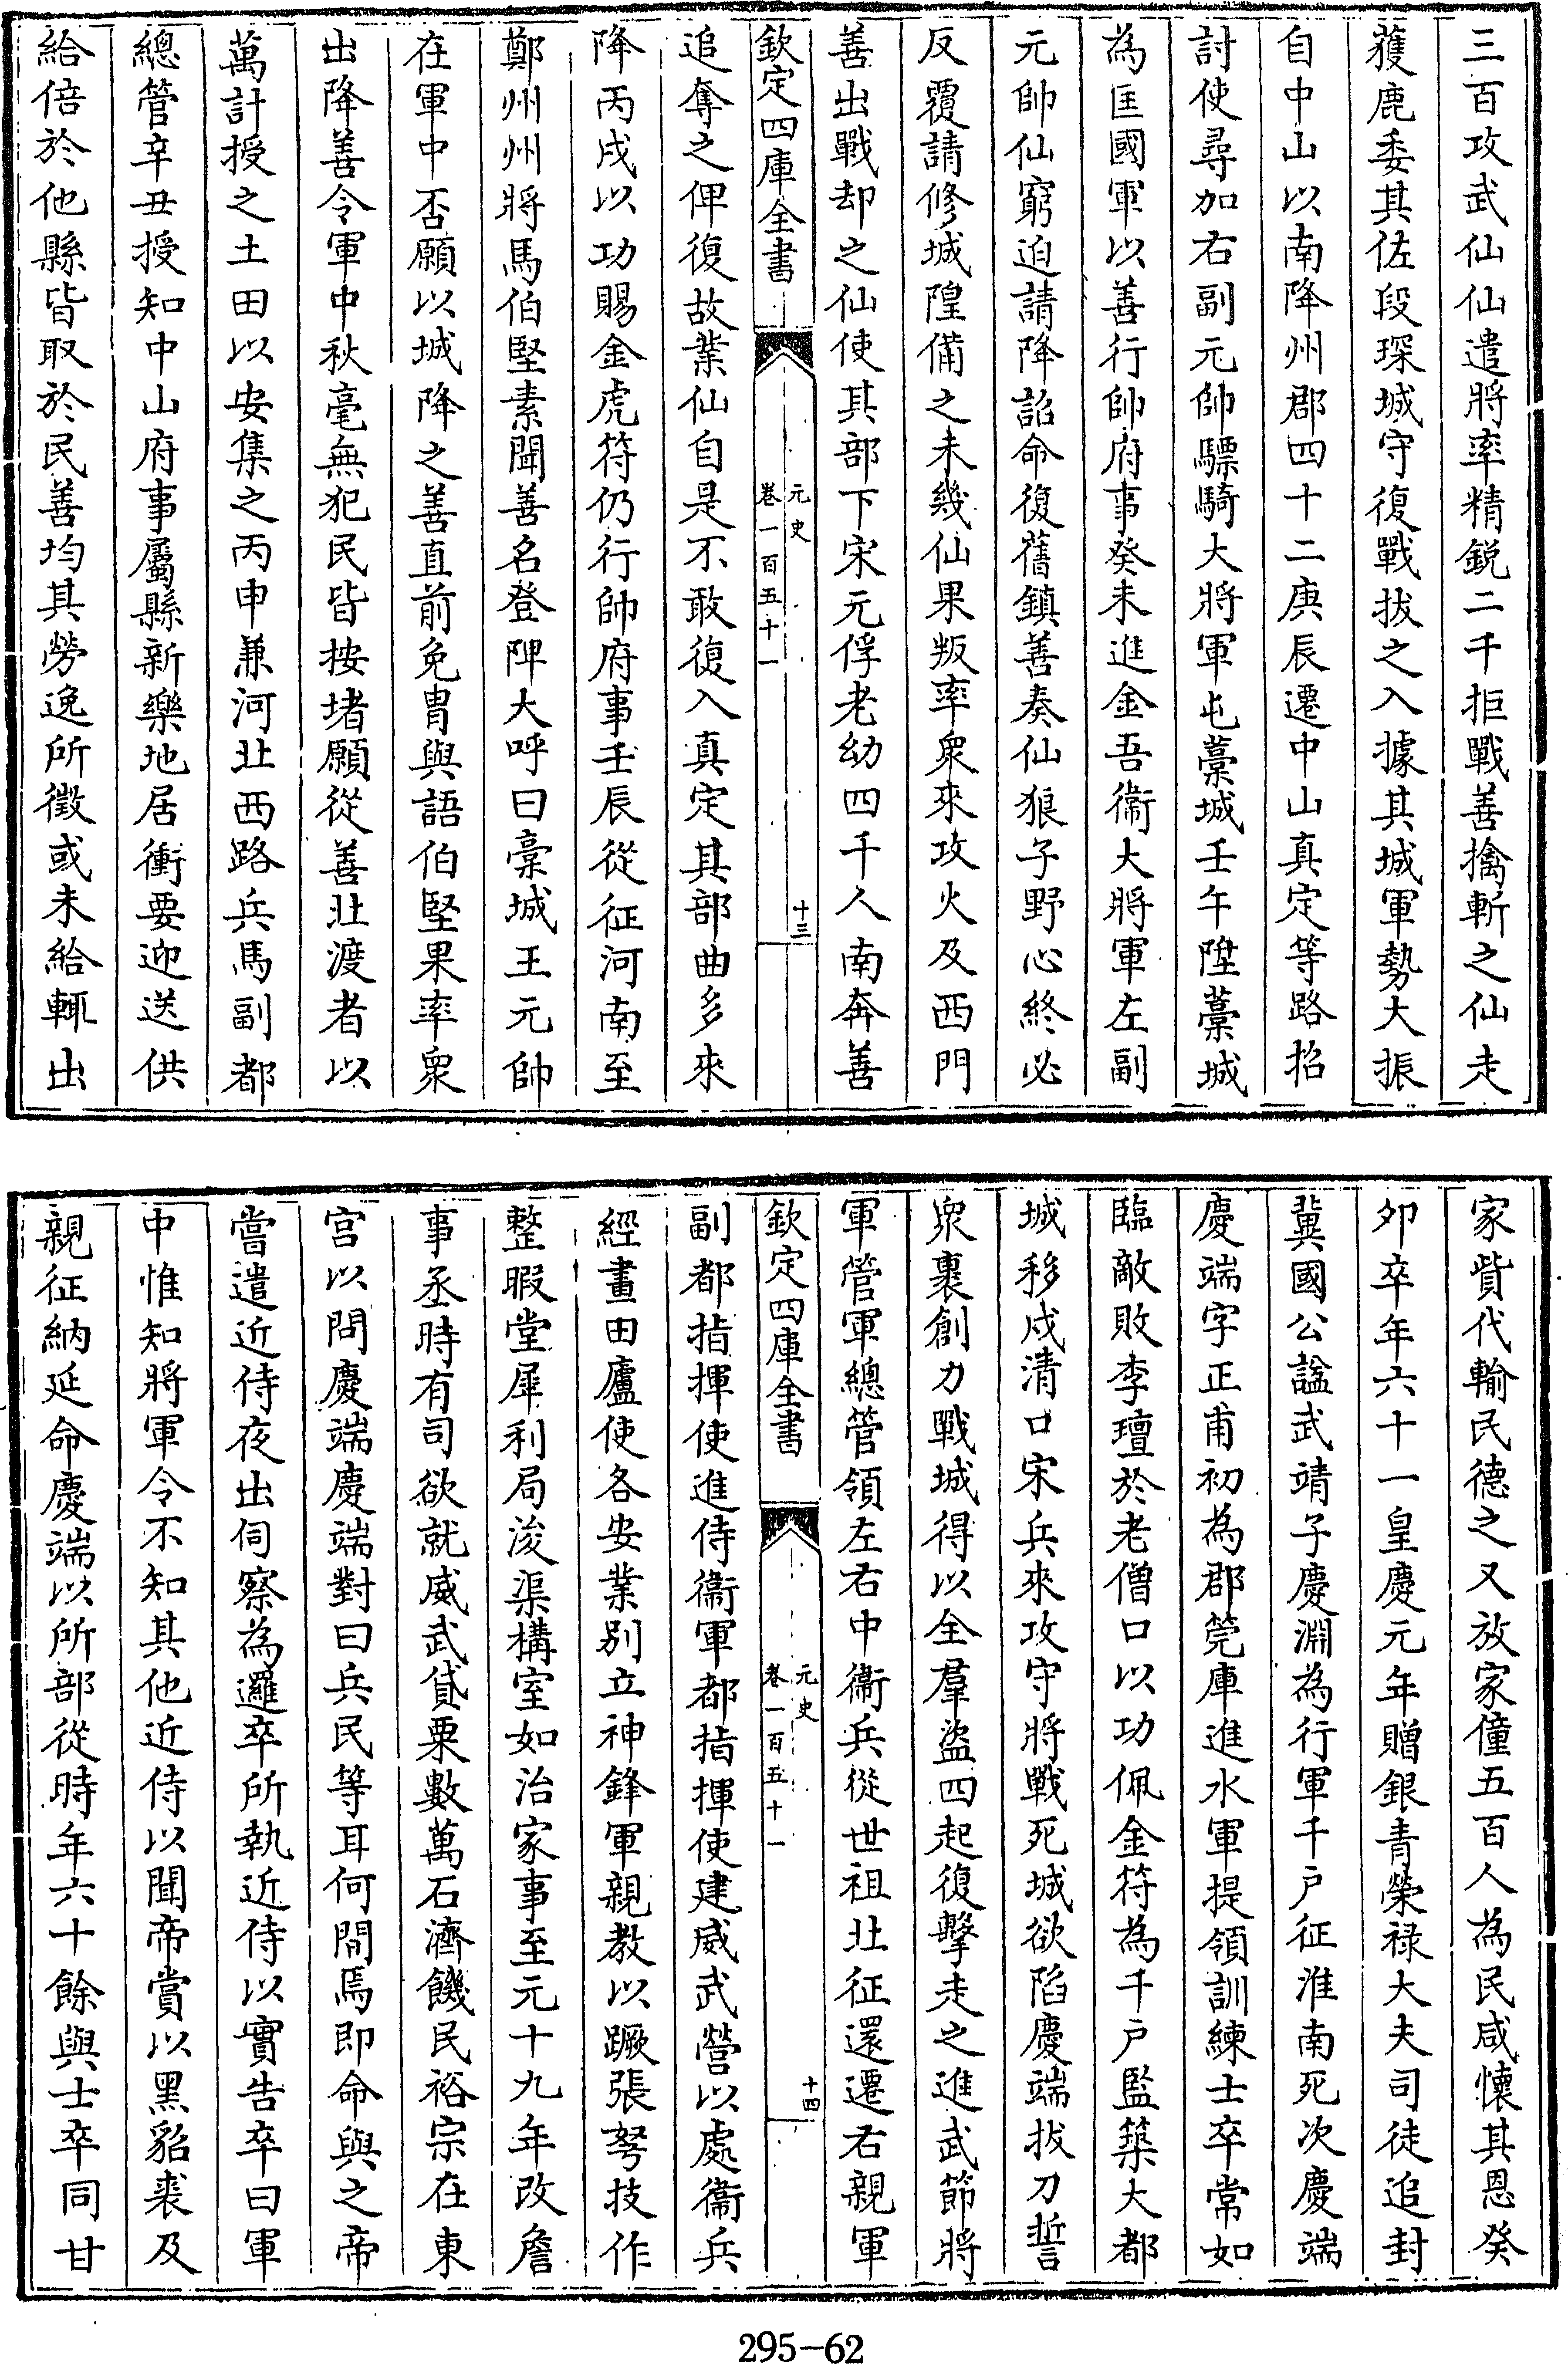 三百攻武仙仙遣將率精鋭二千拒戰善擒斬之仙走
獲鹿委其佐段琛城守復戰拔之入據其城軍勢大振
自中山以南降州郡四十二庚辰遷中山真定等路招
討使尋加右副元帥驃騎大將軍屯藁城壬午陞藁城
為匡國軍以善行帥府事癸未進金吾衞大將軍左副
元帥仙窮迫請降詔命復舊鎮善奏仙狼子野心終必
反覆請修城隍備之未幾仙果叛率衆來攻火及西門
善出戰却之仙使其部下宋元俘老幼四千人南奔善
欽定四庫全書
元史
卷一百五十一
十三
追奪之俾復故業仙自是不敢復入真定其部曲多來
降丙戌以功賜金虎符仍行帥府事壬辰從征河南至
鄭州州將馬伯堅素聞善名登陴大呼曰藁城王元帥
在軍中否願以城降之善直前免胄與語伯堅果率衆
出降善令軍中秋毫無犯民皆按堵願從善北渡者以
萬計授之土田以安集之丙申兼河北西路兵馬副都
總管辛丑授知中山府事屬縣新樂地居衝要迎送供
給倍於他縣皆取於民善均其勞逸所徵或未給輒出
家貲代輸民德之又放家僮五百人為民咸懷其恩癸
卯卒年六十一皇慶元年贈銀青榮禄大夫司徒追封
冀國公諡武靖子慶淵為行軍千户征淮南死次慶端
慶端字正甫初為郡筦庫進水軍提領訓練士卒常如
臨敵敗李璮於老僧口以功佩金符為千户監築大都
城移戍清口宋兵來攻守將戰死城欲陷慶端拔刀誓
衆裹創力戰城得以全羣盜四起復擊走之進武節將
軍管軍總管領左右中衞兵從世祖北征還遷右親軍
欽定四庫全書
元史
卷一百五十一
十四
副都指揮使進侍衞軍都指揮使建威武營以處衞兵
經畫田廬使各安業别立神鋒軍親教以蹶張弩技作
整暇堂犀利局浚渠構室如治家事至元十九年改詹
事丞時有司欲就威武貸粟數萬石濟饑民裕宗在東
宮以問慶端慶端對曰兵民等耳何間焉即命與之帝
嘗遣近侍夜出伺察為邏卒所執近侍以實告卒曰軍
中惟知將軍令不知其他近侍以聞帝賞以黑貂裘及
親征納延命慶端以所部從時年六十餘與士卒同甘
295-62